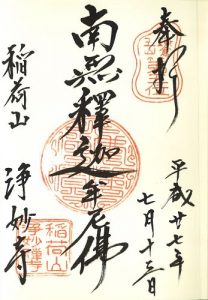 奉拝
平成廿七年
七月十三日
南無釋迦牟尼佛
稲荷山
浄妙寺
稲荷山
浄妙寺